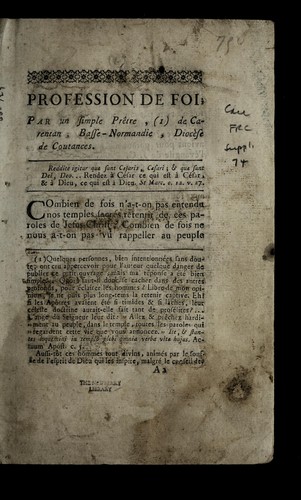 750
PROFESSION DE FOI;
PAR un simple Prêtre, (1) de Ca-
rentan, Basse-Normandie, Diocèse
de Coutances.
Case
FRC
Suppl.
74
Reddite igitur quæ sunt Cæsaris, Cæsari; & quæ sunt
Dei, Deo... Rendez à César ce qui est à César,
& à Dieu, ce qui est à Dieu. St Marc. c. 12. v. 17.
COmbien de fois n'a-t-on pas entendu
nos temples sacrés retentir de ces pa-
roles de Jesus Christ? Combien de fois ne
nous a-t-on pas vu rappeller au peuple
(1) Quelques personnes, bien intentionnées sans dou-
te, ont cru appercevoir pour l'auteur quelque danger de
publier ce petit ouvrage; mais ma réponse a été bien
simple: faut-il donc se cacher dans des antres
profonds, pour éclairer les hommes? Liberté de mon opi-
nion, ne puis plus long-tems la retenir captive. Eh!
si les Apôtres avaient été si timides & si lâches, leur
céleste doctrine aurait-elle fait tant de prosélites?...
L'ange du Seigneur leur dit: Allez & prêchez hardi-
ment au peuple, dans le temple, toutes les paroles qui
regardent cette vie que vous annoncez. Ite, & stan-
tes loquimini in templo plebi omnia verba vitæ hujus. Ac-
tuum Apost. c. 5.
Aussi-tôt ces hommes tout divins, animés par le souf-
fle de l'esprit de Dieu qui les inspire, malgré le conseil des
A2
THE NEWBERRY
LIBRARY